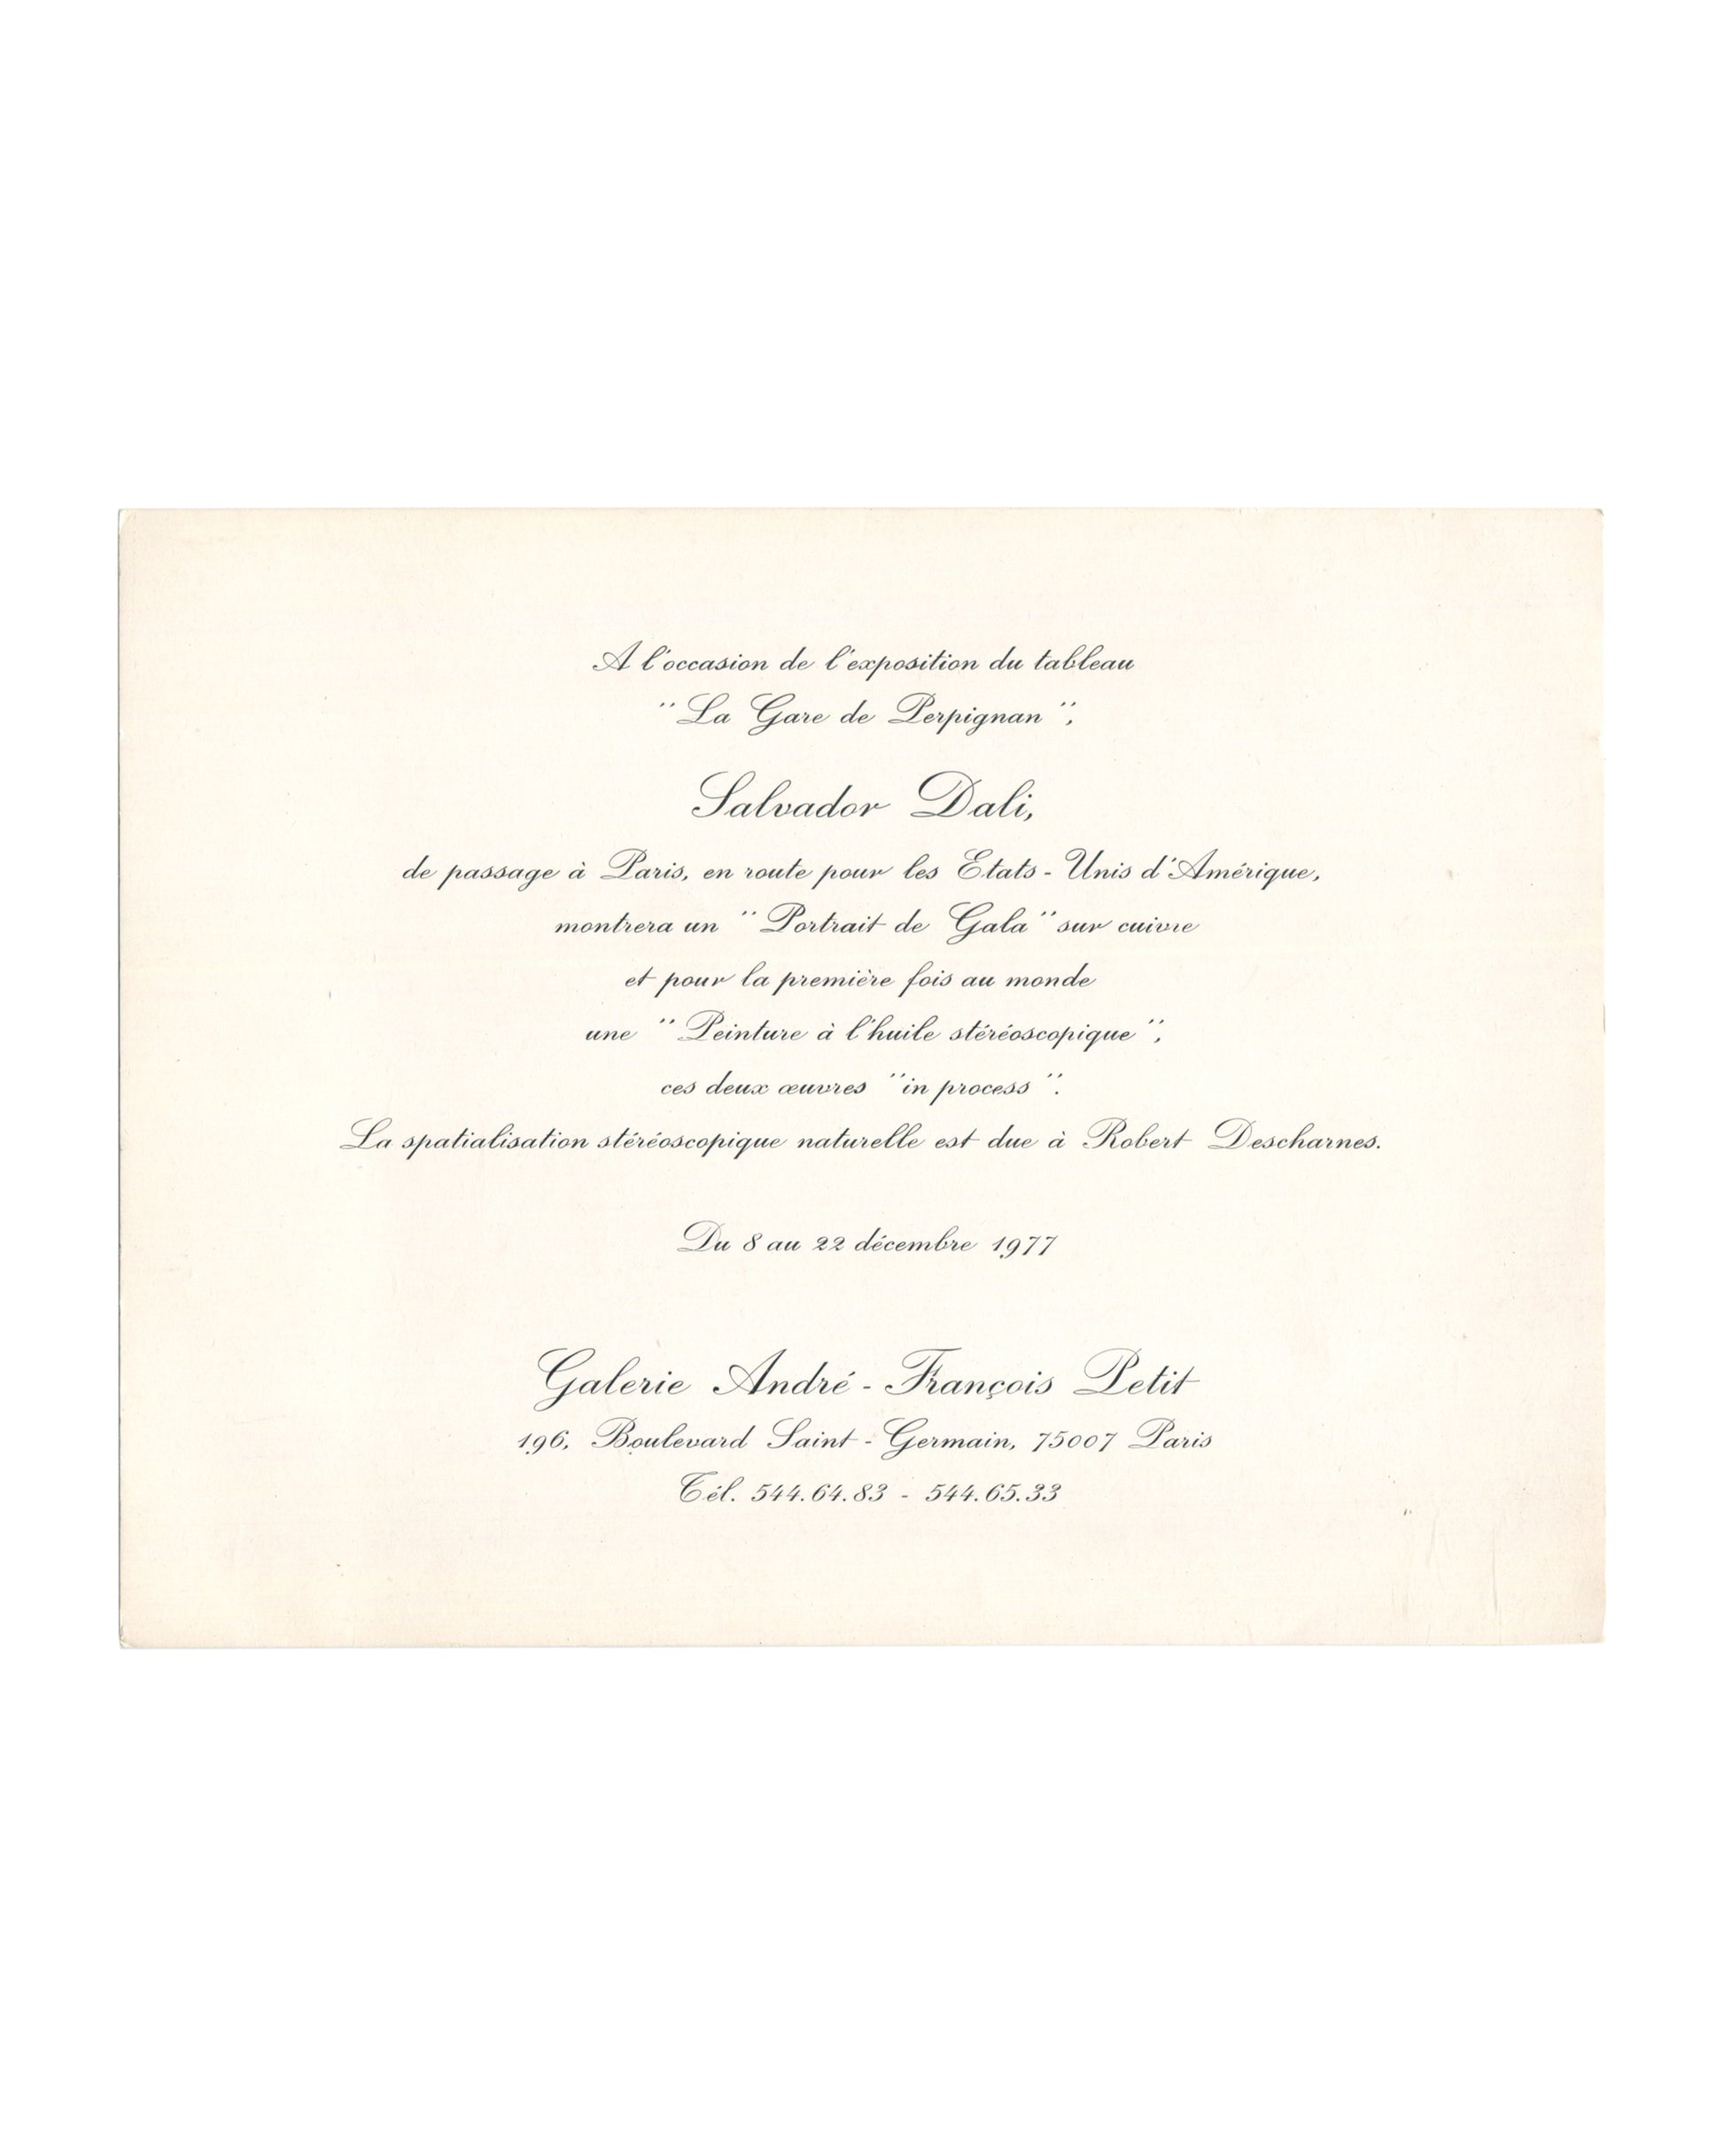 A l'occasion de l'exposition du tableau
" La Gare de Perpignan ",
Salvador Dali,
de passage à Paris, en route pour les Etats - Unis d'Amérique,
montrera un " Portrait de Gala" sur cuivre
et pour la première fois au monde
une " Peinture à l'huile stéréoscopique ",
ces deux œuvres "in process ".
La spatialisation stéréoscopique naturelle est due à Robert Descharnes.
Du 8 au 22 décembre 1977
Galerie André - François Petit
196, Boulevard Saint - Germain, 75007 Paris
Tél. 544.64.83 - 544.65.33